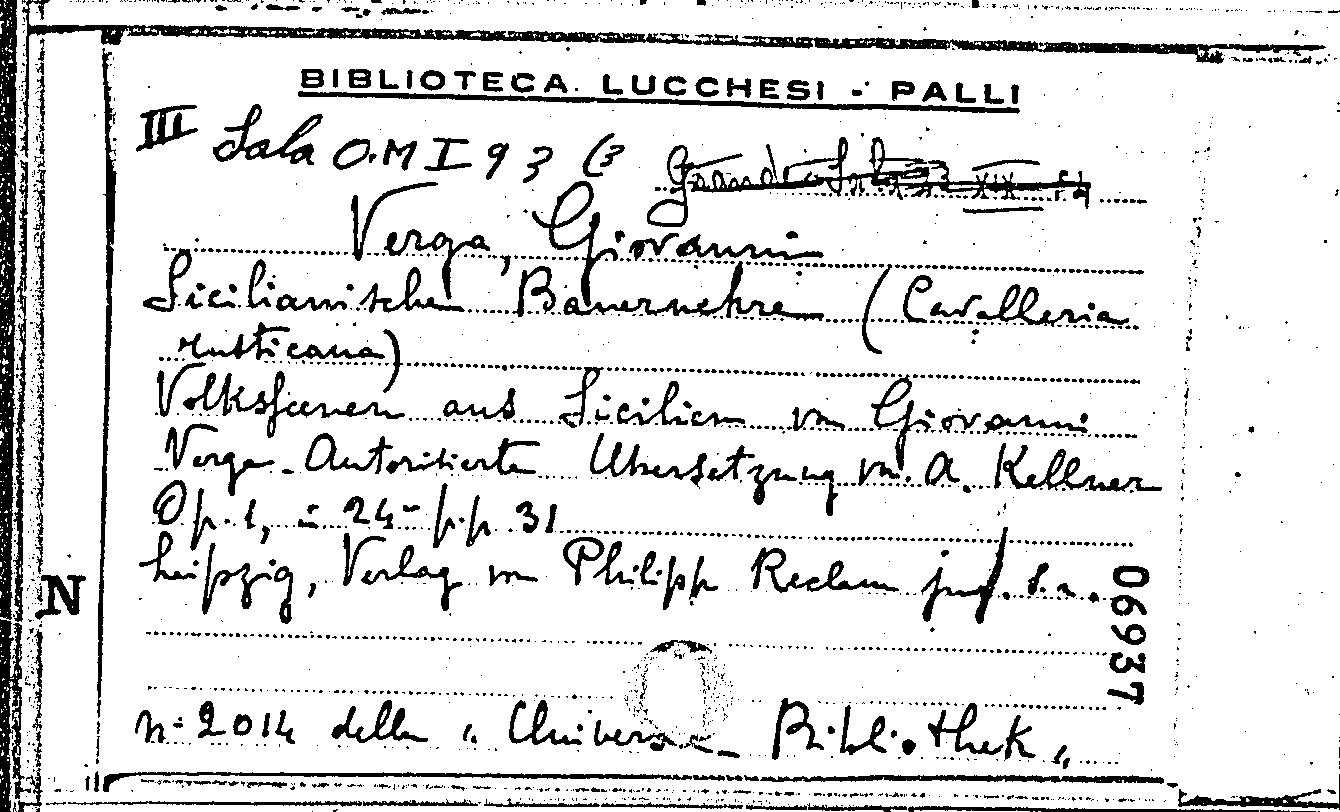 BIBLIOTECA LUCCHESI - PALLI
III Sala O.M I 9 3 (3 Grande Sala 23 XIX
Verga, Giovanni
Sicilianischen Bauernehre (Cavalleria
rusticana)
Volksscenen aus Sicilien von Giovanni
Verga - Autorisierte Übersetzung von A. Kellner
Op. 1, in 24° p.p. 31
Leipzig, Verlag von Philipp Reclam jun. s.a.
N
06937
n° 2014 della " Universal Bibliothek "